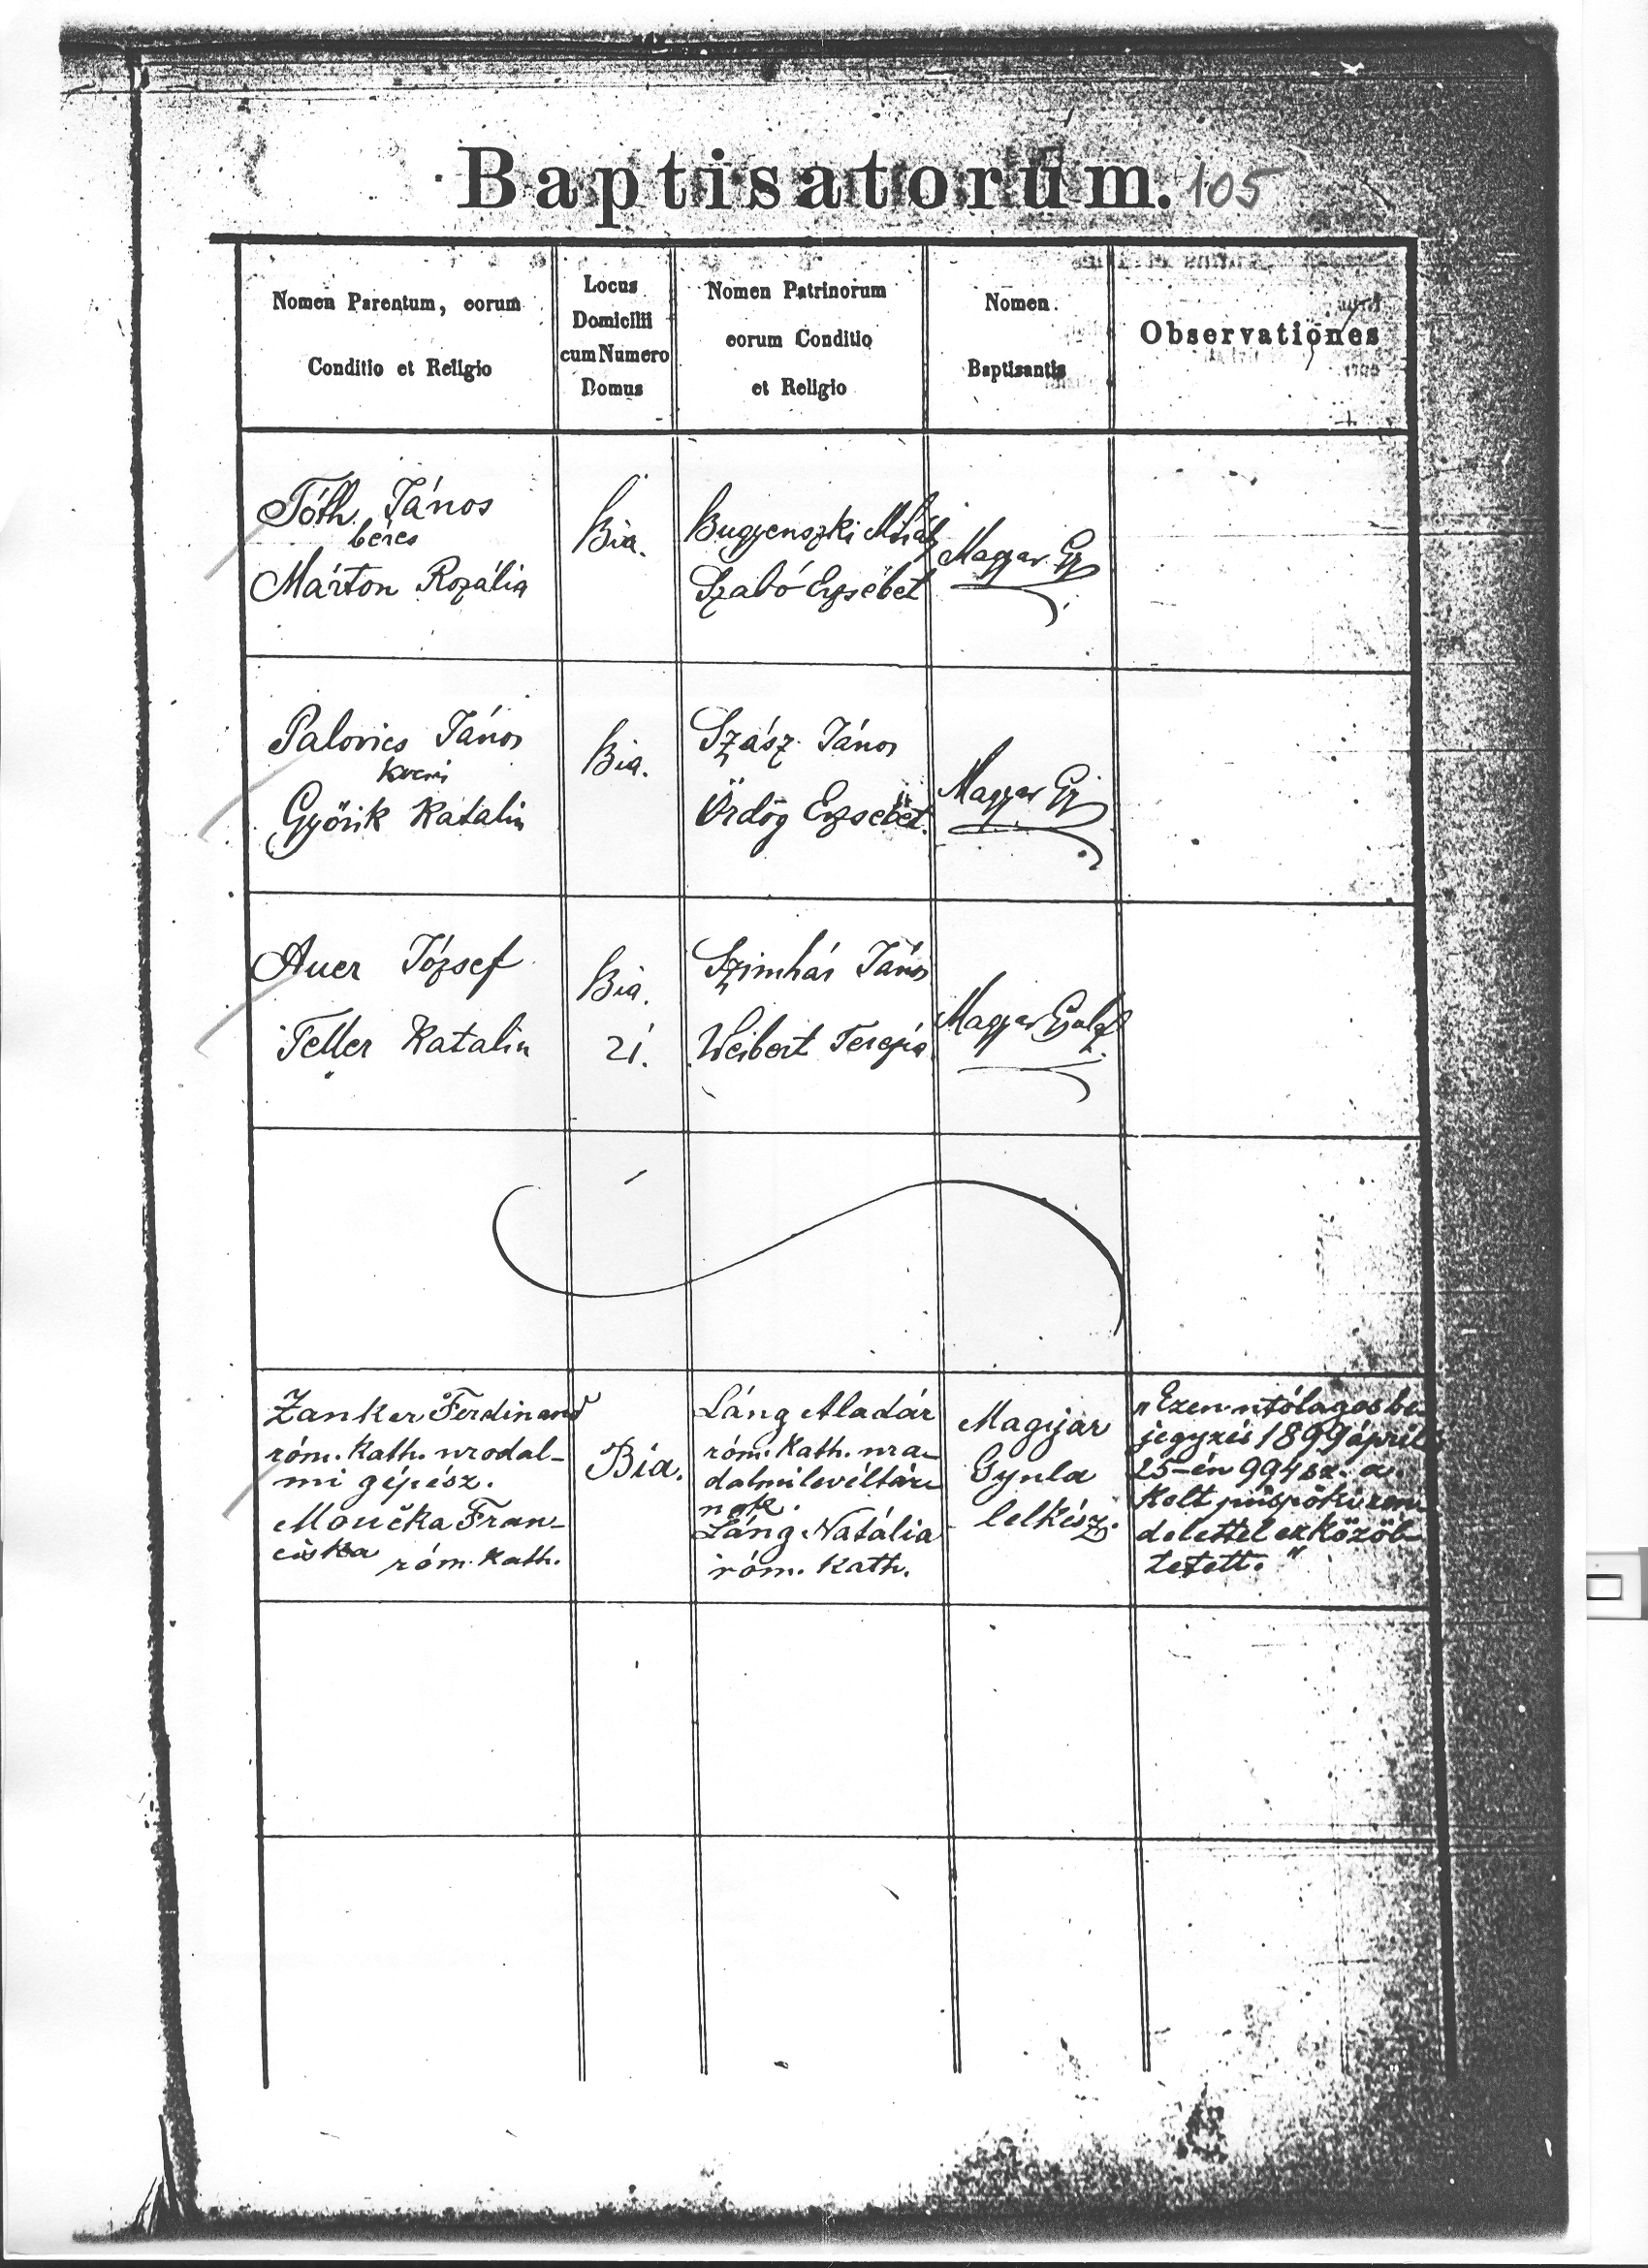 Baptisatorum. 105
Nomen Parentum, eorum
Conditio et Religio
Locus
Domicilii
cum Numero
Domus
Nomen Patrinorum
eorum Conditio
et Religio
Nomen
Baptisantis
Observationes
Tóth János
béres
Márton Rozália
Bia.
Bugyenszki Mihály
Szabó Erzsébet
Magyar Gy
Palovics János
kocsis
Győrik Katalin
Bia.
Szász János
Ördög Erzsébet.
Magyar Gy
Auer József
Feller Katalin
Bia.
21.
Szimhár János
Weibert Terézia
Magyar Gyula
Zanker Ferdinand
róm. kath. urodal-
mi gépész.
Moučka Fran-
ciska róm. kath.
Bia.
Láng Aladár
róm. kath. ura-
dalmi levéltár-
nok.
Láng Natália
róm. kath.
Magyar
Gyula
lelkész.
„Ezen utólagos be-
jegyzés 1899 április
25-én 994 sz. a.
kelt püspöki ren-
delettel eszközöl-
tetett."